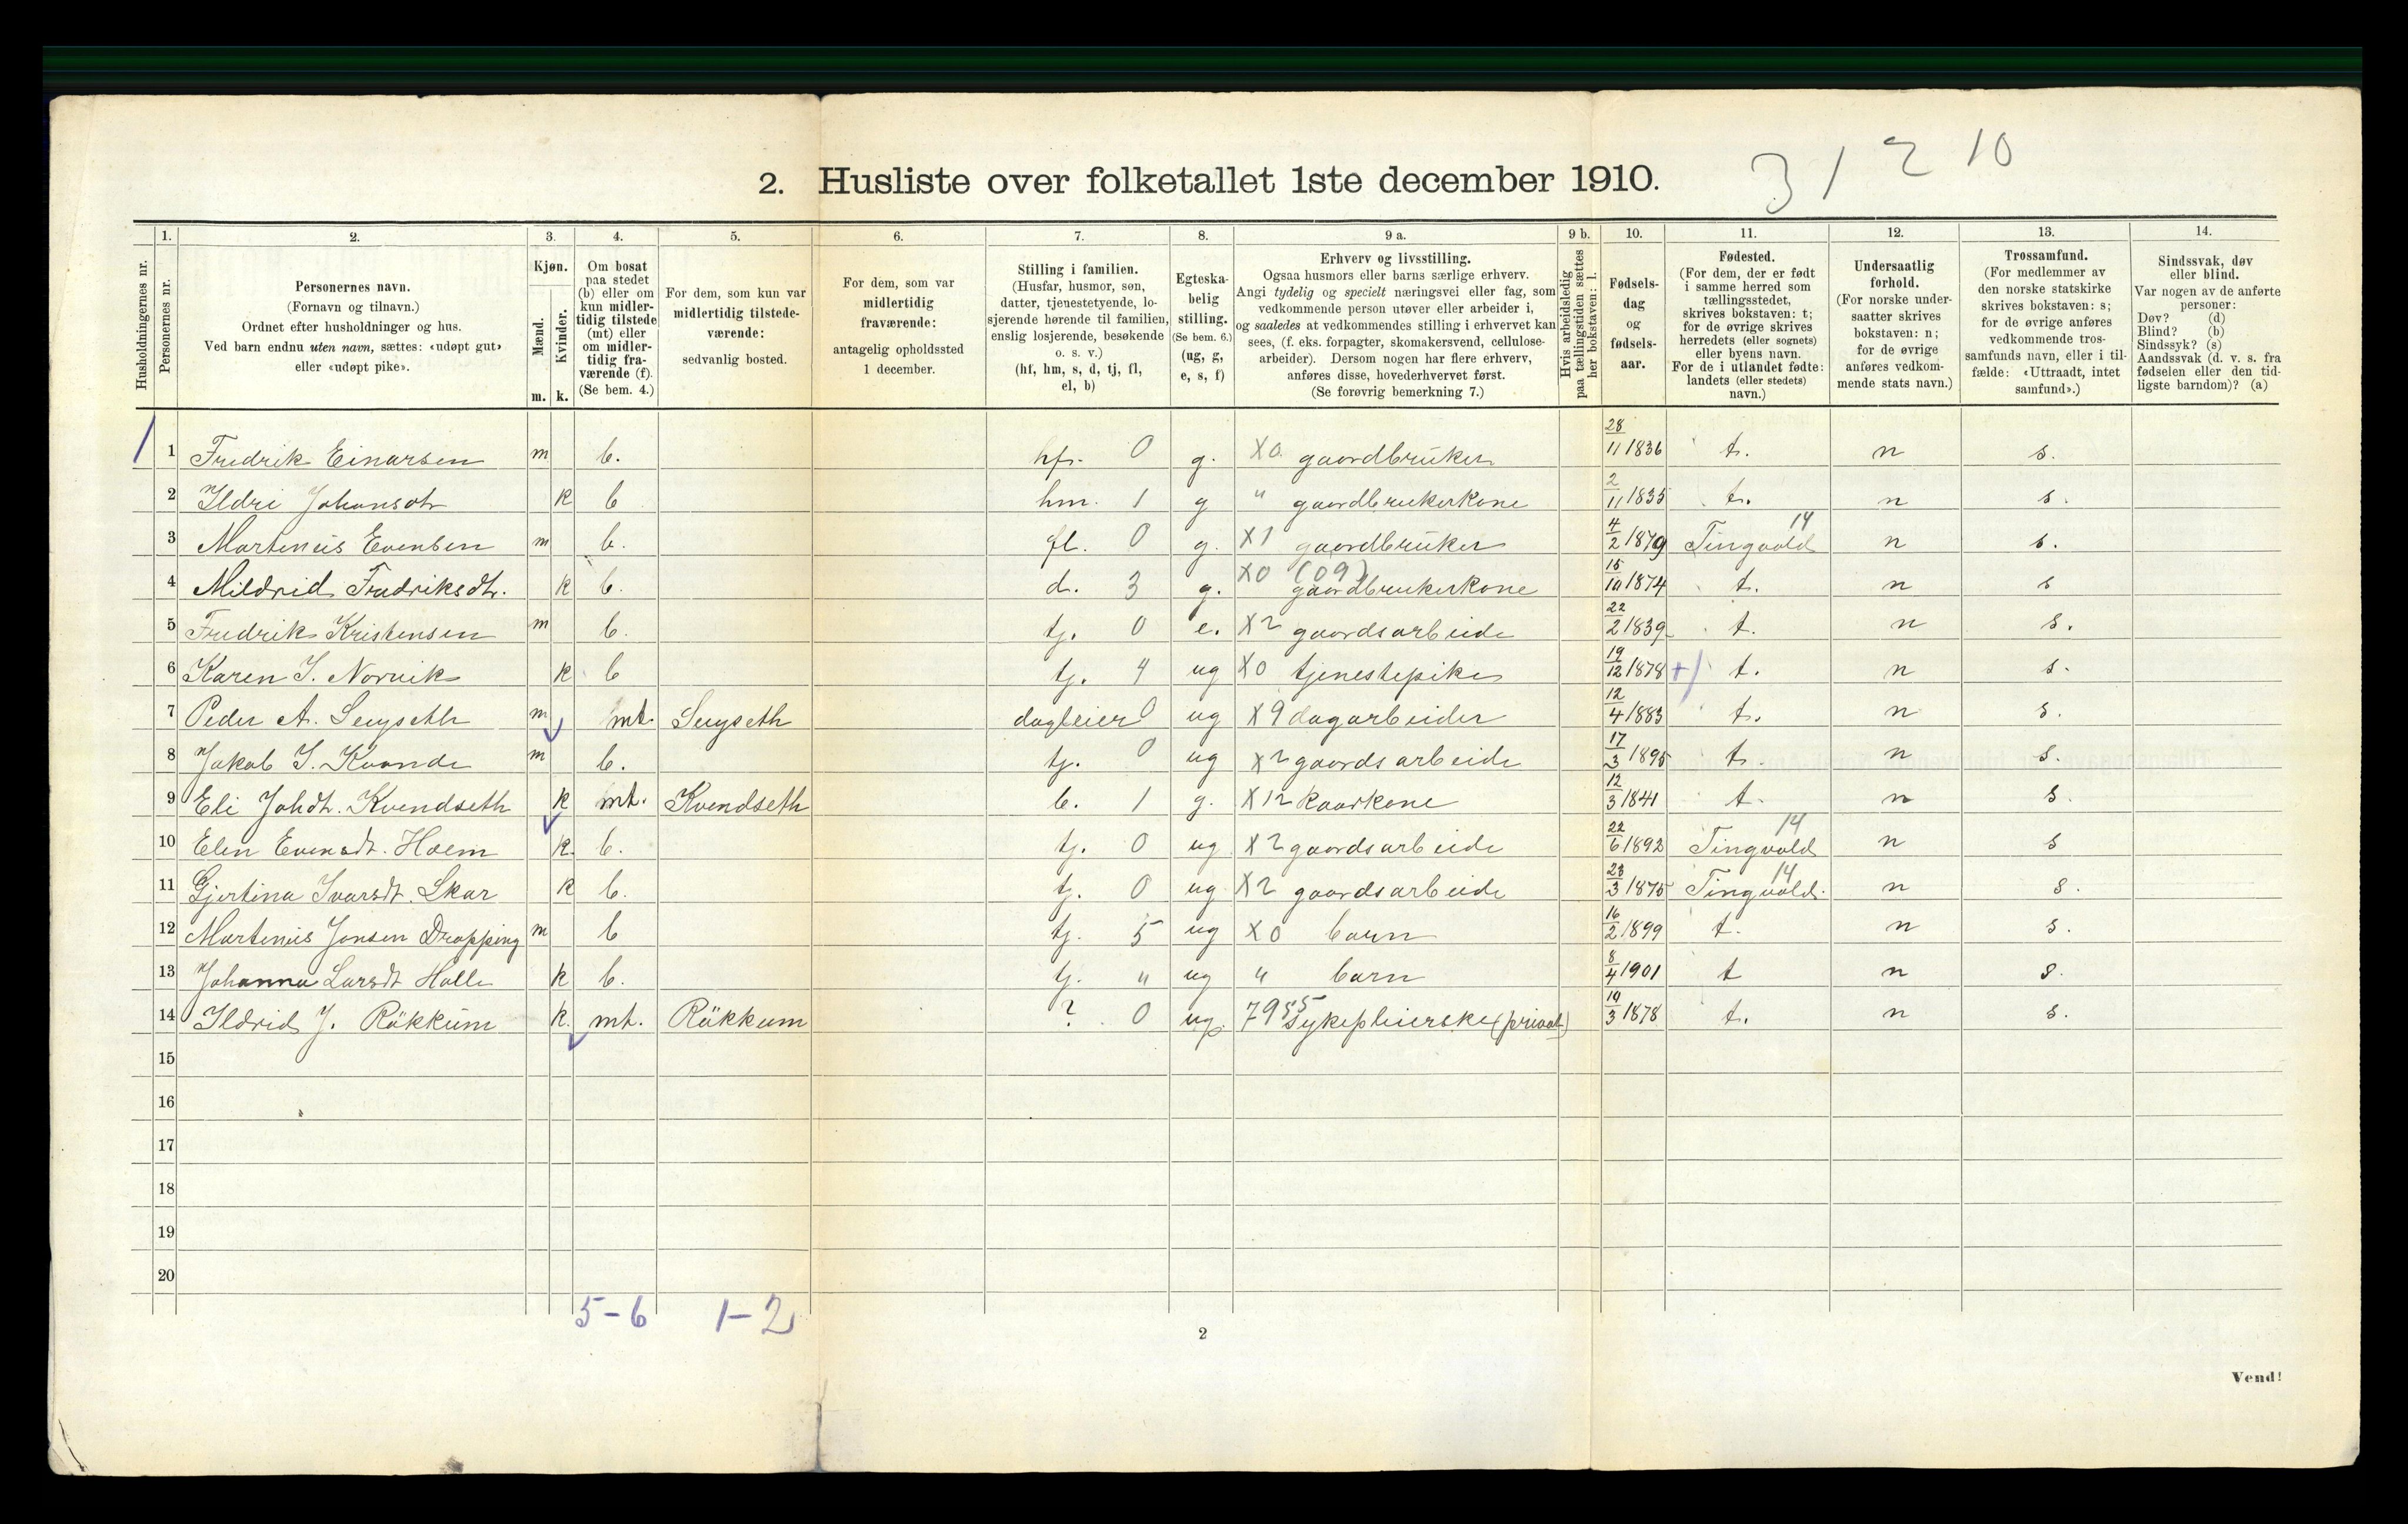 2. Husliste over folketallet 1ste december 1910.
3 1 2 10
1. 2. 3. 4. 5. 6. 7. 8. 9 a. 9 b. 10. 11. 12. 13. 14.
Husholdningernes nr.
Personernes nr.
Personernes navn.
(Fornavn og tilnavn.)
Ordnet efter husholdninger og hus.
Ved barn endnu uten navn, sættes: «udøpt gut»
eller «udøpt pike».
Kjøn.
Mænd.
Kvinder.
m. k.
Om bosat
paa stedet
(b) eller om
kun midler-
tidig tilstede
(mt) eller
om midler-
tidig fra-
værende (f).
(Se bem. 4.)
For dem, som kun var
midlertidig tilstede-
værende:
sedvanlig bosted.
For dem, som var
midlertidig
fraværende:
antagelig opholdssted
1 december.
Stilling i familien.
(Husfar, husmor, søn,
datter, tjenestetyende, lo-
sjerende hørende til familien,
enslig losjerende, besøkende
o. s. v.)
(hf, hm, s, d, tj, fl,
el, b)
Egteska-
belig
stilling.
(Se bem. 6.)
(ug, g,
e, s, f)
Erhverv og livsstilling.
Ogsaa husmors eller barns særlige erhverv.
Angi tydelig og specielt næringsvei eller fag, som
vedkommende person utøver eller arbeider i,
og saaledes at vedkommendes stilling i erhvervet kan
sees, (f. eks. forpagter, skomakersvend, cellulose-
arbeider). Dersom nogen har flere erhverv,
anføres disse, hovederhvervet først.
(Se forøvrig bemerkning 7.)
Hvis arbeidsledig
paa tællingstiden sættes
her bokstaven: l.
Fødsels-
dag
og
fødsels-
aar.
Fødested.
(For dem, der er født
i samme herred som
tællingsstedet,
skrives bokstaven: t;
for de øvrige skrives
herredets (eller sognets)
eller byens navn.
For de i utlandet fødte:
landets (eller stedets)
navn.)
Undersaatlig
forhold.
(For norske under-
saatter skrives
bokstaven: n;
for de øvrige
anføres vedkom-
mende stats navn.)
Trossamfund.
(For medlemmer av
den norske statskirke
skrives bokstaven: s;
for de øvrige anføres
vedkommende tros-
samfunds navn, eller i til-
fælde: «Uttraadt, intet
samfund».)
Sindssvak, døv
eller blind.
Var nogen av de anførte
personer:
Døv? (d)
Blind? (b)
Sindssyk? (s)
Aandssvak (d. v. s. fra
fødselen eller den tid-
ligste barndom)? (a)
1 1 Fredrik Einarsen m b. hf. 0 g. X0 gaardbruker 28/11 1836 t. n s.
2 Ildri Johansdtr k b hm. 1 g " gaardbrukerkone 2/11 1835 t. n s.
3 Martenius Evensen m b. fl. 0 g. X1 gaardbruker 4/2 1879 Tingvold 14 n s.
4 Mildrid Fredriksdtr. k b. d. 3 g. X0 (09) gaardbrukerkone 15/10 1874 t. n s
5 Fredrik Kristensen m b. tj. 0 e. X2 gaardsarbeide 22/2 1839 t. n s.
6 Karen J. Norvik k b tj. 4 ug X0 tjenestepike 19/12 1878 + t. n s.
7 Peder A. Seuyseth m mt. Seuyseth dagleier 0 ug X9 dagarbeider 12/4 1883 t. n s.
8 Jakob J. Kvande m b. tj. 0 ug X2 gaardsarbeide 17/3 1895 t. n s.
9 Eli Johdt. Kvendseth k mt. Kvendseth b. 1 g. X12 kaarkone 12/3 1841 t. n s.
10 Elen Evensdt. Hoem k. b. tj. 0 ug X2 gaardsarbeide 22/6 1892 Tingvold 14 n s
11 Gjertina Ivarsdt. Skar k b. tj. 0 ug X2 gaardsarbeide 23/3 1875 Tingvold. 14 n s.
12 Martenius Jonsen Dropping m b tj. 5 ug X0 barn 16/2 1899 t. n s.
13 Johanna Larsdt Halle k b. tj. " ug " barn 8/4 1901 t n s.
14 Ildrid J. Rökkum k. mt. Rökkum ? 0 ug. 7955 sykepleierske (privat) 19/3 1878 t. n s.
15
16
17
18
19
20
5-6 1-2
2
Vend!